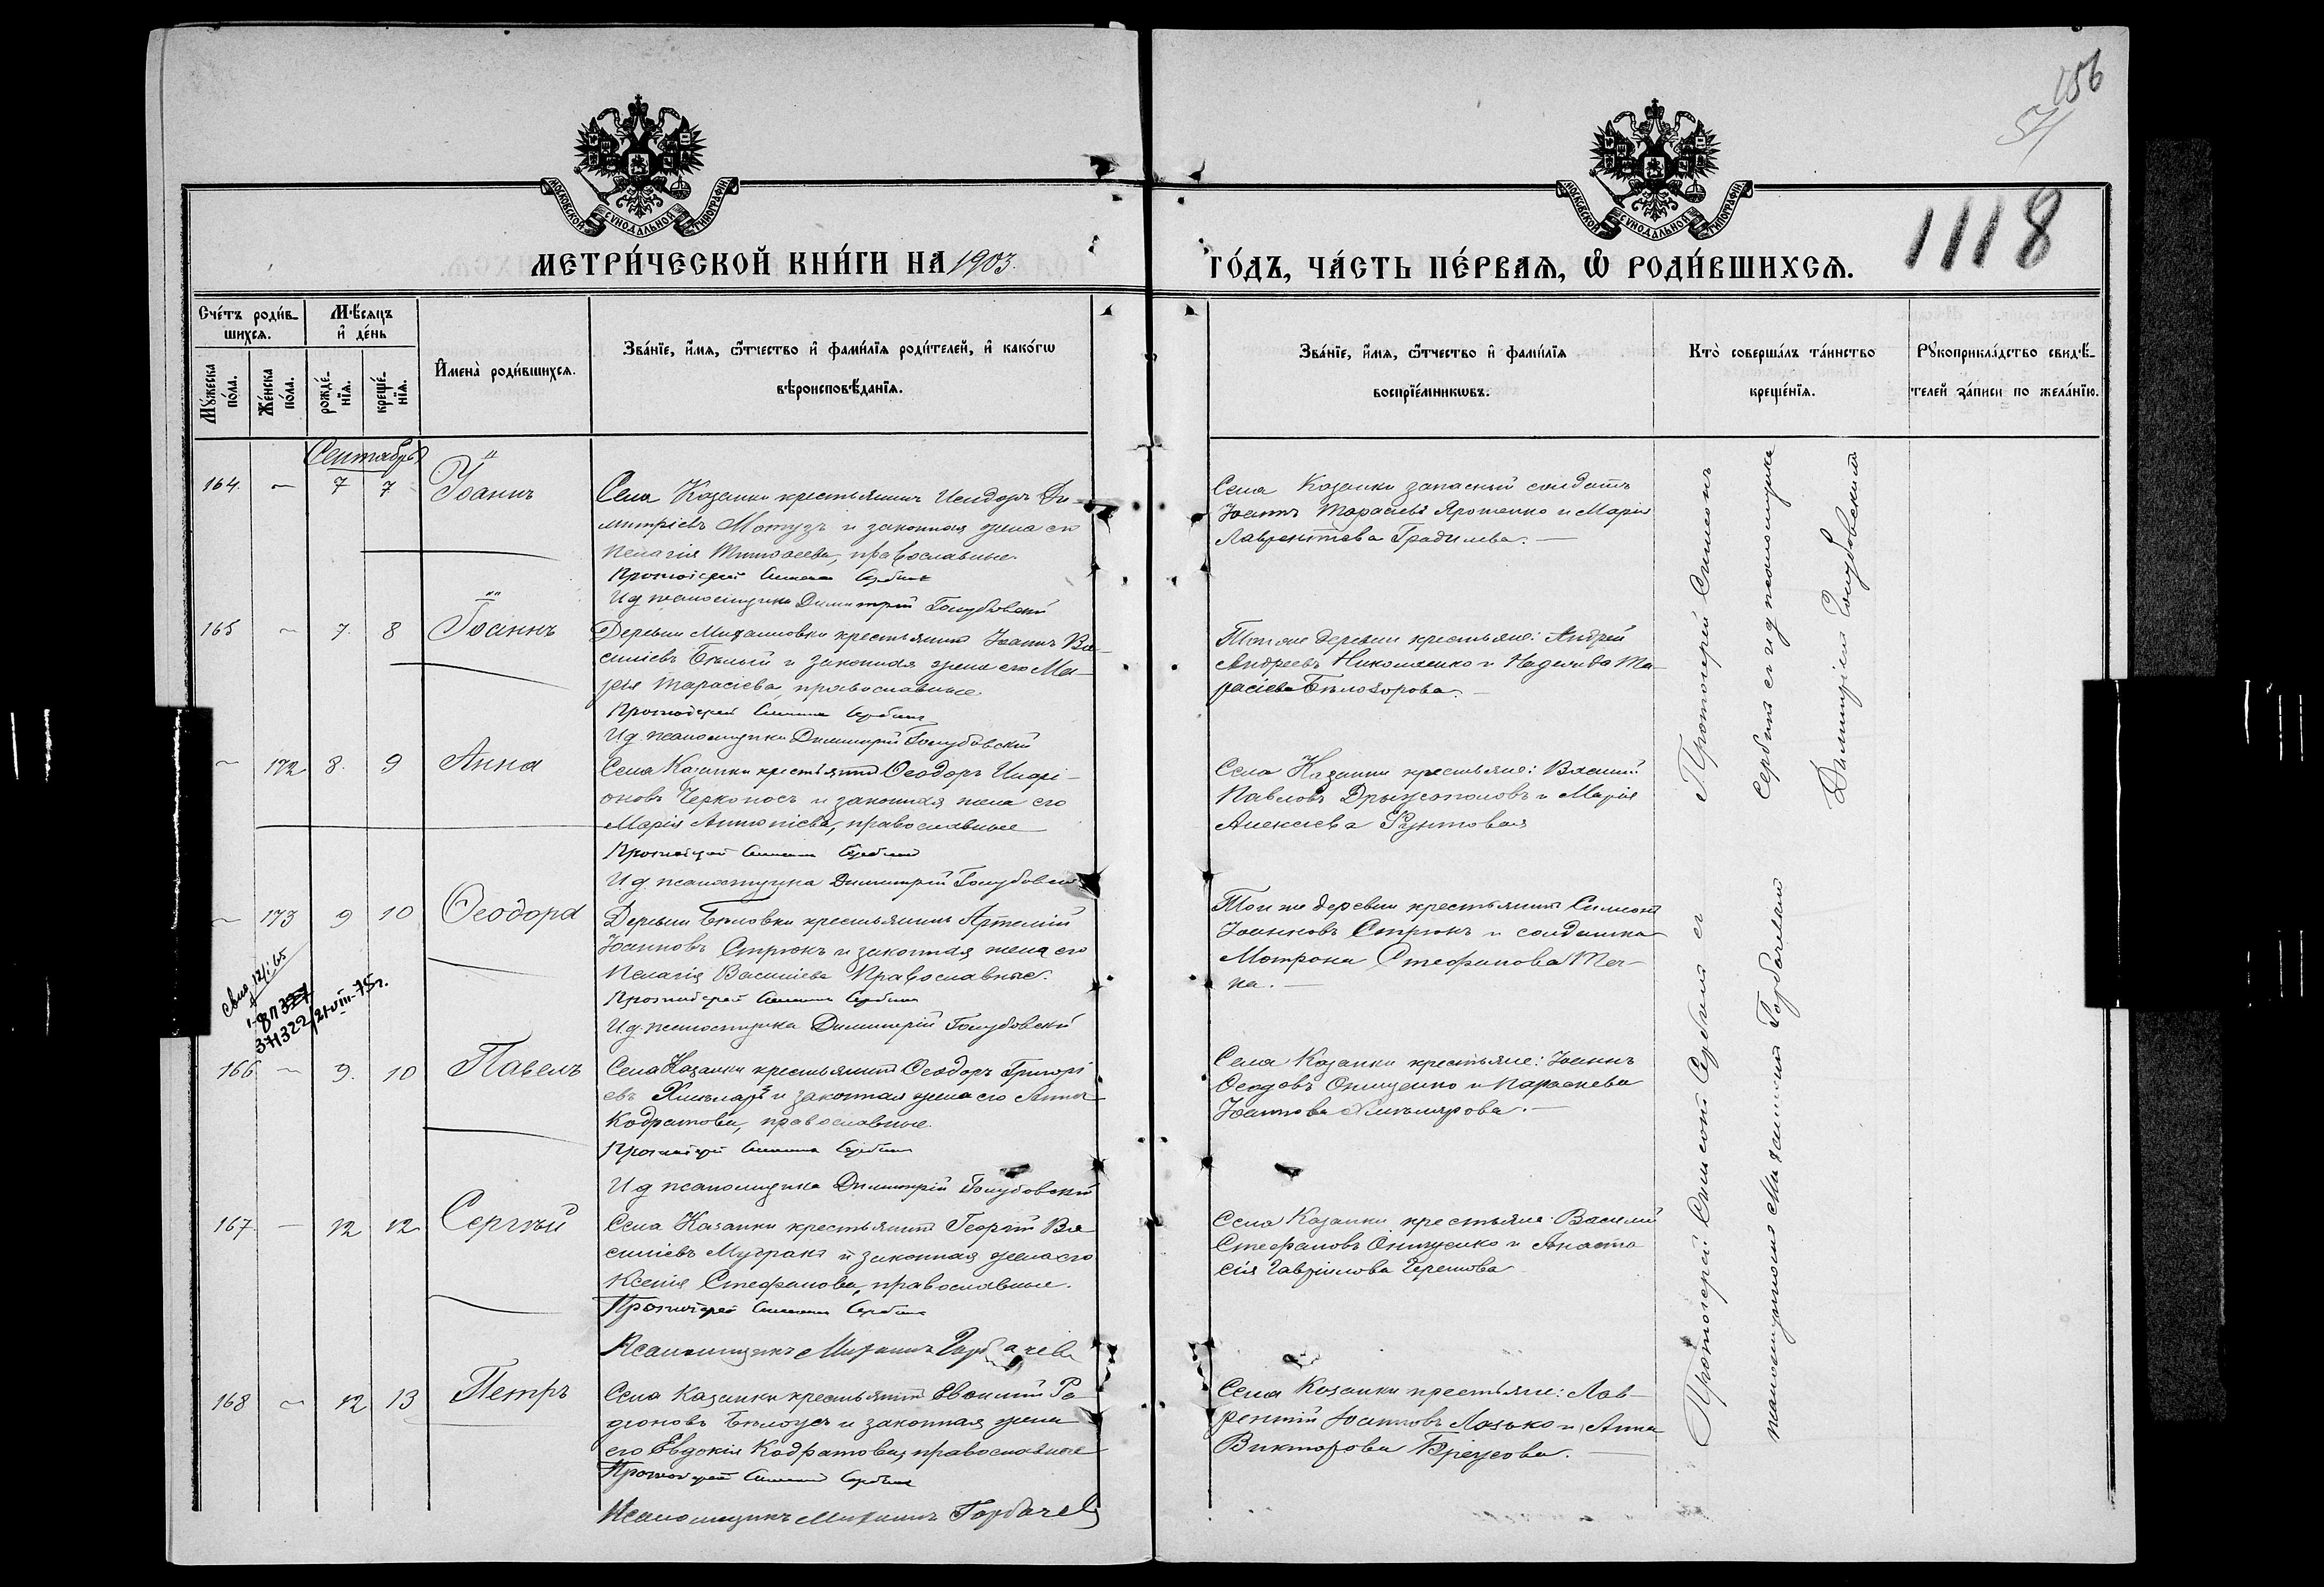 156
54
1118
МОСКОВСКОЙ СУНОДАЛЬНОЙ ТИПОГРАФІИ
МОСКОВСКОЙ СУНОДАЛЬНОЙ ТИПОГРАФІИ
МЕТРИ́ЧЕСКОЙ КНИ́ГИ НА 1903.
ГО́ДЪ, ЧА́СТЬ ПЕ́РВАѦ, Ѡ҆ РОДИ́ВШИХСѦ.
Сче́тъ роди́в-
шихсѧ.
Мꙋ́жеска
по́ла.
Же́нска
по́ла.
Мѣ́сѧцъ
и҆ де́нь
рожде́-
нїѧ.
креще́-
нїѧ.
И҆мена̀ роди́вшихсѧ.
Зва́нїе, и҆́мѧ, ѻ҆́тчество и҆ фами́лїѧ роди́телей, и҆ како́гѡ
вѣроисповѣ́данїѧ.
Зва́нїе, и҆́мѧ, ѻ҆́тчество и҆ фами́лїѧ
воспрїе́мникѡвъ.
Кто̀ соверша́лъ та́инство
креще́нїѧ.
Рꙋкоприкла́дство свидѣ́-
телей за́писи по жела́нїю.
Сентябрь
164. — 7 7 Іоаннъ
Села Казанки крестьянинъ Исидоръ Ди-
митріевъ Мотузъ и законная жена его
Пелагія Тимоѳеева, православные.
Протоіерей Симеонъ Сербинъ
И д псаломщика Димитрій Голубовскій
Села Казанки запасный солдатъ
Іоаннъ Тарасіевъ Ярошенко и Марія
Лаврентіева Градилева. —
165 — 7. 8 Іоаннъ
Деревни Михайловки крестьянинъ Іоаннъ Ва-
силіевъ Бѣлый и законная жена его Ма-
рія Тарасіева, православные
Протоіерей Симеонъ Сербинъ
И д. псаломщика Димитрій Голубовскій
Той же деревни крестьяне: Андрей
Андреевъ Николаенко и Надежда Та-
расіева Бѣлозорова. —
— 172 8. 9 Анна
Села Казанки крестьянинъ Ѳеодоръ Иларі-
оновъ Черконосъ и законная жена его
Марія Антоніева, православные
Протоіерей Симеонъ Сербинъ
И. д. псаломщика Димитрій Голубовскій
Села Казанки крестьяне: Василій
Павловъ и Марія
Алексіева
— 173 9 10 Ѳеодора
Деревни Бѣловки крестьянинъ Артемій
Іоанновъ Стрюкъ и законная жена его
Пелагія Василіева Православные.
Протоіерей Симеонъ Сербинъ
И. д. псаломщика Димитрій Голубовскій
Той же деревни крестьянинъ Симеонъ
Іоанновъ Стрюкъ и солдатка
Матрона Стефанова
на. —
371322/21-VIII-75г.
166 — 9. 10 Павелъ
Села Казанки крестьянинъ Ѳеодоръ Григорі
евъ Химяръ и законная жена его Анна
Кодратова, православные.
Протоіерей Симеонъ Сербинъ
И д псаломщика Димитрій Голубовскій
Села Казанки крестьяне: Іоаннъ
Онищенко и Параскева
Іоаннова —
167. — 12 12 Сергѣй
Села Казанки крестьянинъ Георгій Ва
силіевъ и законная жена его
Ксенія Стефанова, православные.
Протоіерей Симеонъ Сербинъ
Псаломщикъ Михаилъ Горбачевъ
Села Казанки крестьяне: Василій
Стефановъ Онищенко и Анаста
сія Гавріилова
168 — 12 13 Петръ
Села Казанки крестьянинъ Ро
діоновъ Бѣлоусъ и законная жена
его Евдокія Кодратова, православные
Протоіерей Симеонъ Сербинъ
Псаломщикъ Михаилъ Горбачевъ
Села Казанки крестьяне: Лав-
рентій Іоанновъ Лазько и Анна
Викторова —
Протоіерей Симеонъ
Сербинъ съ и д псаломщика
Димитріемъ Голубовскимъ
Протоіерей Симеонъ Сербинъ съ
псаломщикомъ Михаиломъ Горбачевымъ